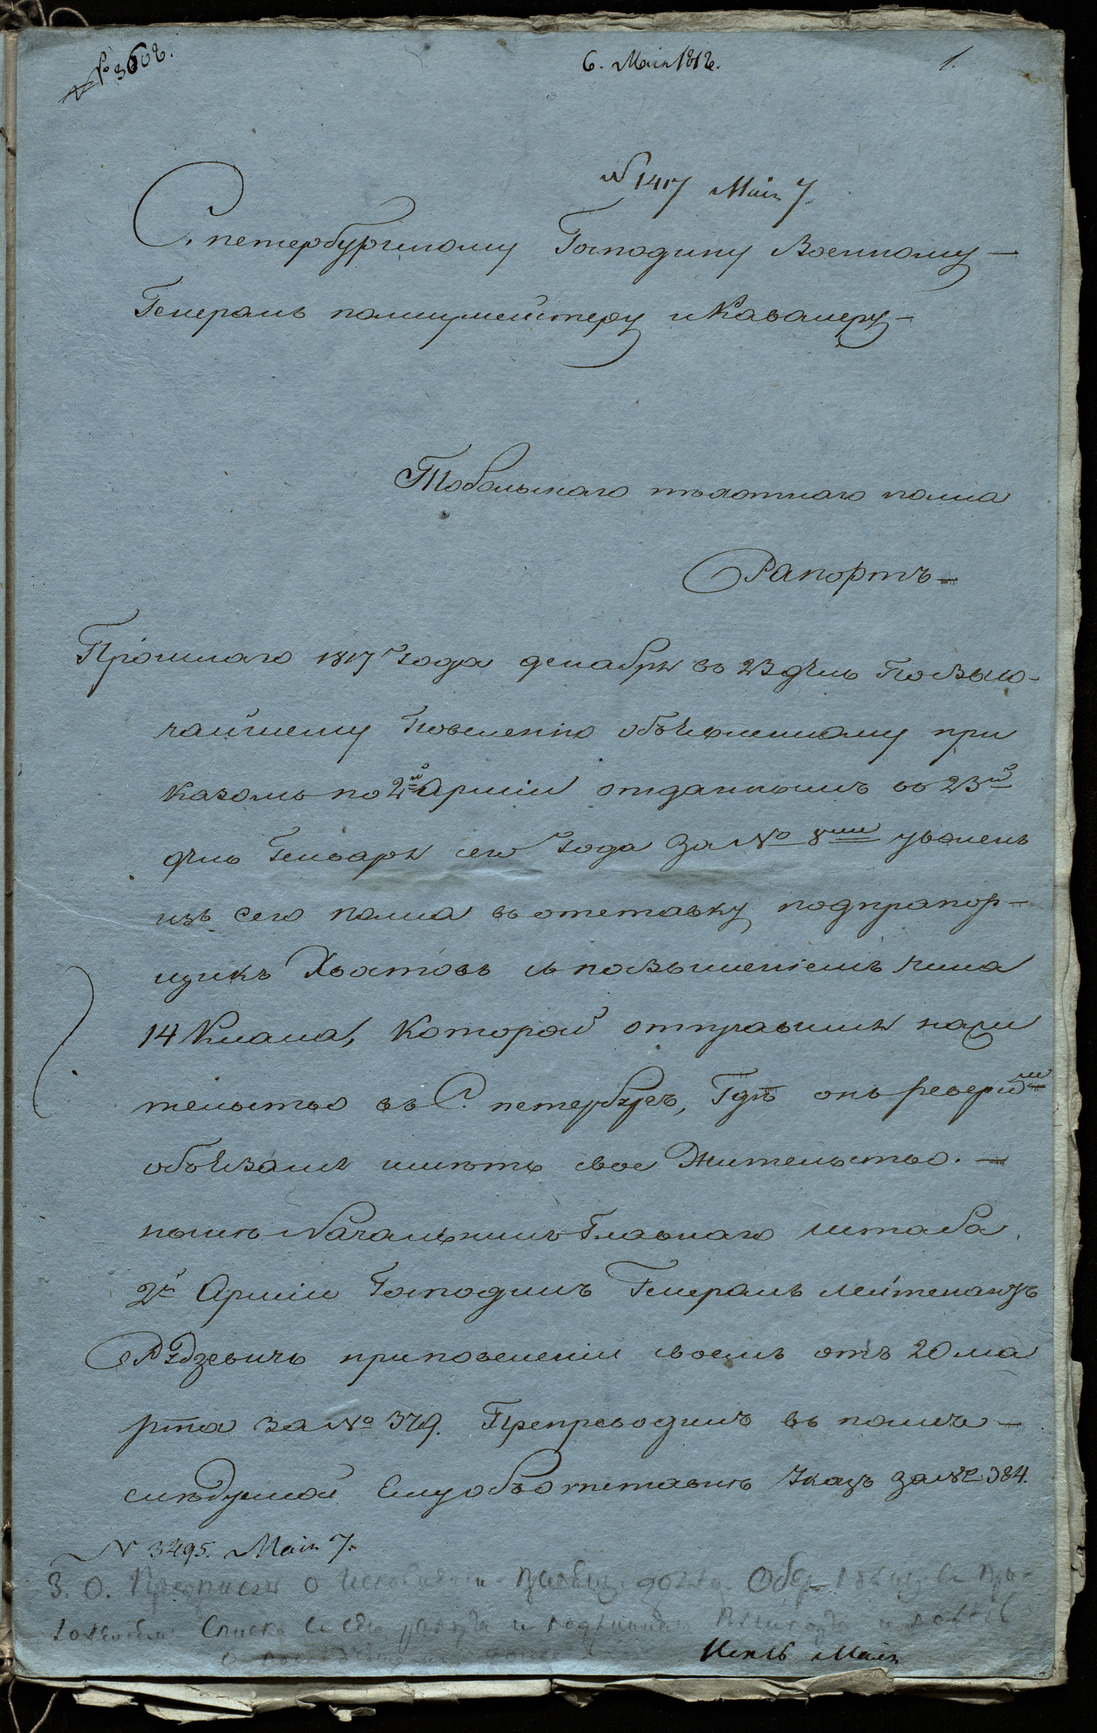 № 3608.
6. Маія 1818.
1.
№ 1417 Маія 7.
С. петербургскому Господину Военному
Генералъ полицмейстеру и Кавалеру
Тобольскаго пѣхотнаго полка
Рапортъ
Прошлаго 1817 года декабря въ 23 день По Высо-
чайшему Повеленію объявленному при
казомъ по 2й Арміи отданнымъ въ 23й
день Генваря сего года за № 8мъ уволенъ
изъ сего полка въ отставку подпрапор-
щикъ Хвостовъ съ повышеніемъ чина
14 Класса, Которой отправился на жи
тельство въ С. петербургъ, Гдѣ онъ
обязался иметь свое Жительство.
ныне Начальникъ Главнаго штаба
2й Арміи Господинъ Генералъ лейтенантъ
Рудзевичь при повеленіи своемъ отъ 20 ма
рта за № 379. Препроводилъ въ полкъ
следуемой Ему объ отставке Указъ за № 384.
№ 3495. Маія 7.
З. О. Предписать о
Списка и
Маія